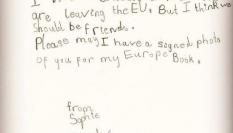 are leaving the EU. But I think we
should be friends.
Please may I have a signed photo
of you for my Europe Book.
from
Sophie